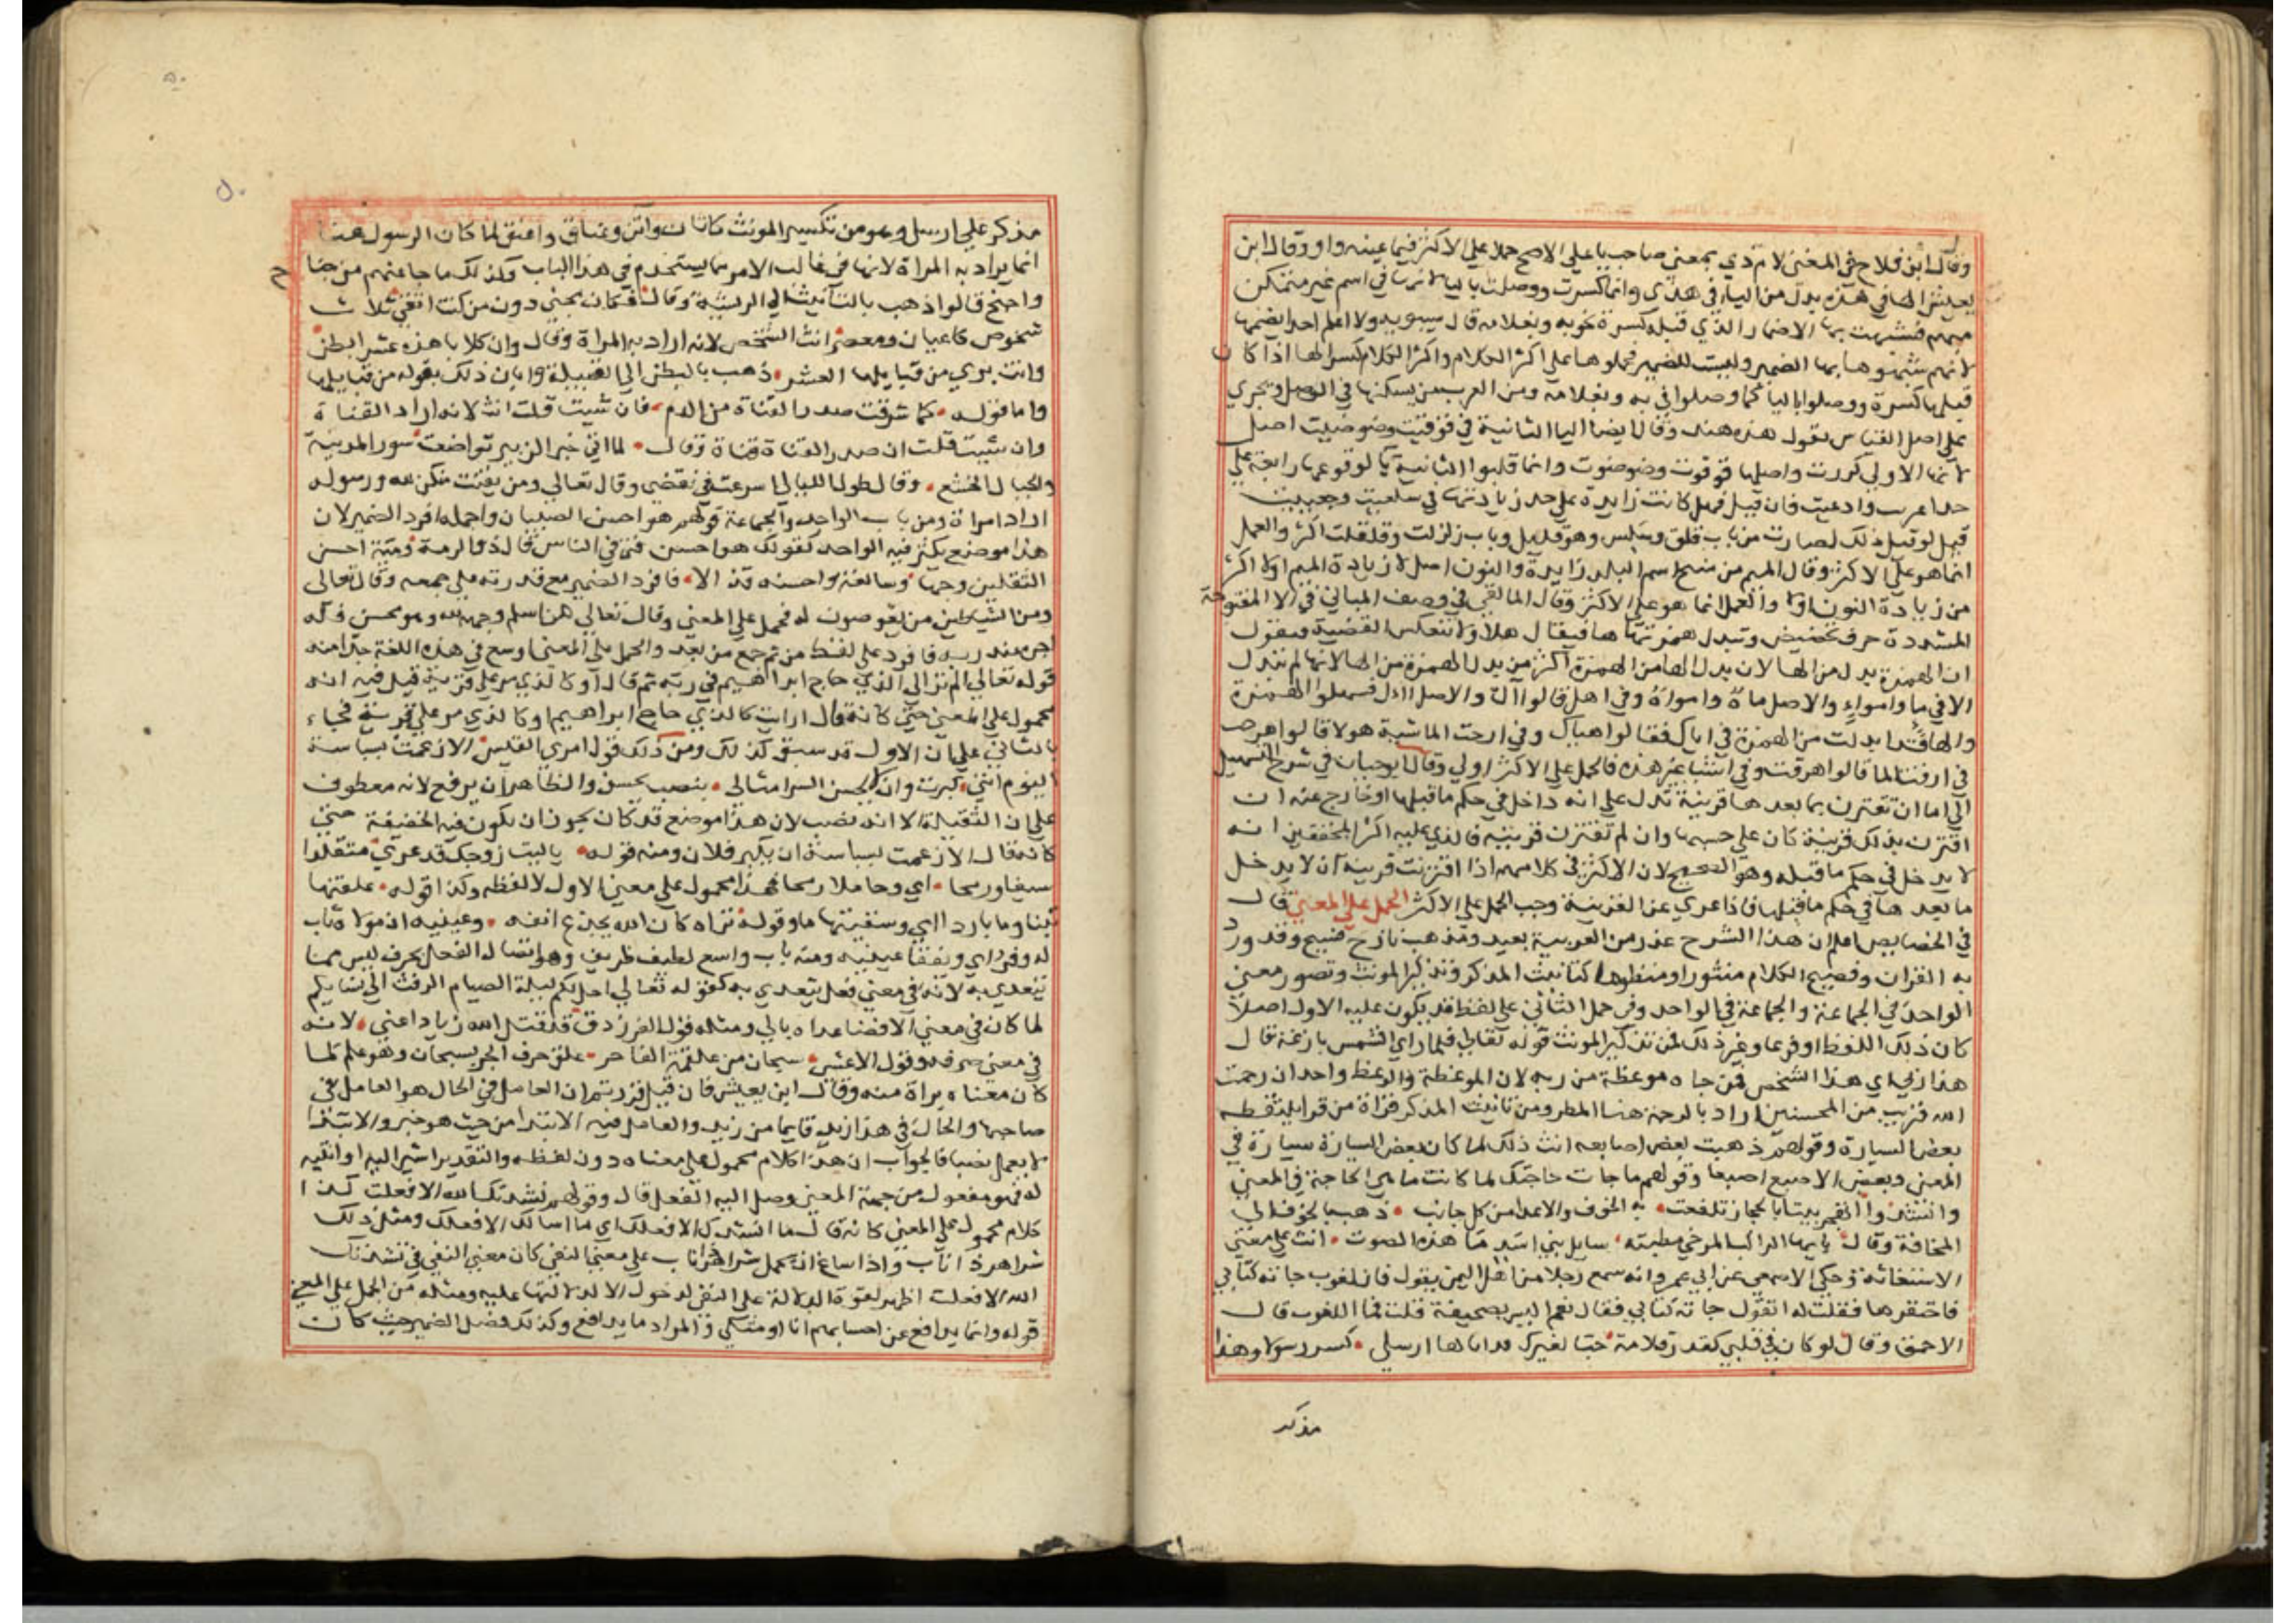 وقال ابن فلاح في المغني لام ذي بمعنى صاحب يا على الاصح حملا على الاكثر فيما عينه واو وقال ابن
يعيش الها في هذه بدل من اليا في هذي وانما كسرت ووصلت باليا لانها في اسم غير متمكن
مبهم فشبهت بها الاضمار الذي قبله كسرة نحو به وبغلامه قال سيبويه ولا اعلم احدا يضمها
لانهم شبهوها بها الضمير وليست للضمير فحملوها على اكثر الكلام واكثر الكلام كسر الها اذا كان
قبلها كسرة ووصلوا باليا كما وصلوا في به وبغلامه ومن العرب من يسكنها في الوصل ويجري
على اصل القياس يقول هذه هند وقال ايضا اليا الثانية في قوقيت وضوضيت اصل
لانها الاولى كررت واصلها قوقوت وضوضوت وانما قلبوا الثانية يا لوقوعها رابعة على
حد اغريت وادعيت فان قيل فهل كانت زايدة على حد زيادتها في سلقيت وجعبيت
قيل لو قيل ذلك لصارت من باب قلق وسلس وهو قليل وباب زلزلت وقلقلت اكثر والعمل
انما هو على الاكثر وقال الميم من منبج اسم البلد زايدة والنون اصل لان زيادة الميم اولا اكثر
من زيادة النون اولا والعمل انما هو على الاكثر وقال المالقي في وصف المباني في الا المفتوحة
المشددة حرف تحضيض وتبدل همزتها ها فيقال هلا ولا تنعكس القضية فيقول
ان الهمزة بدل من الها لان بدل الها من الهمزة اكثر من بدل الهمزة من الها لانها لم تبدل
الا في ماء وامواء والاصل ماه وامواه وفي اهل قالوا آل والاصل اال فسهلوا الهمزة
والها قد ابدلت من الهمزة في اياك فقالوا هياك وفي ارحت الماشية هولا قالوا هرحت
في ارقت الما قالوا هرقت وفي اشيا غير هذه فالحمل على الاكثر اولى وقال ابو حيان في شرح التسهيل
الى اما ان تقترن بما بعدها قرينة تدل على انه داخل في حكم ما قبلها او خارج عنه ان
اقترن بذلك قرينة كان على حسبها وان لم تقترن قرينة فالذي عليه اكثر المحققين انه
لا يدخل في حكم ما قبله وهو الصحيح لان الاكثر في كلامهم اذا اقترنت قرينة ان لا يدخل
ما بعدها في حكم ما قبلها فاذا عري عن القرينة وجب الحمل على الاكثر الحمل على المعنى قال
في الخصايص اعلم ان هذا الشرح غور من العربية بعيد ومذهب نازح فسيح وقد ورد
به القران وفصيح الكلام منثورا ومنظوما كتانيث المذكر وتذكير المونث وتصور معنى
الواحد في الجماعة والجماعة في الواحد وفي حمل الثاني على لفظ قد يكون عليه الاول اصلا
كان ذلك اللفظ او فرعا وغير ذلك فمن تذكير المونث قوله تعالى فلما راى الشمس بازغة قال
هذا ربي اي هذا الشخص فمن جاه موعظة من ربه لان الموعظة والوعظ واحد ان رحمت
الله قريب من المحسنين اراد بالرحمة هنا المطر ومن تانيث المذكر قراة من قرا يلتقطه
بعض السيارة وقولهم ذهبت بعض اصابعه انث ذلك لما كان بعض السيارة سيارة في
المعنى وبعض الاصبع اصبعا وقولهم ما جات حاجتك لما كانت ما هي الحاجة في المعنى
وانشدوا بيتا بالحجاز تلفعت به الخوف والاعدا من كل جانب ذهب بالخوف الى
المخافة وقال يا ايها الراكب المزجي مطيته سايل بني اسد ما هذه الصوت انث على معنى
الاستغاثة وحكى الاصمعي عن ابي عمرو انه سمع رجلا من اهل اليمن يقول فلان لغوب جاته كتابي
فاحتقرها فقلت له اتقول جاته كتابي فقال نعم اليس بصحيفة قلت فما اللغوب قال
الاحمق وقال لو كان في قلبي كقدر قلامة حبا لغيرك قد اتاها ارسلي كسر رسولا وهذا
مذكر
مذكر على ارسل وهو من تكسير المونث كاتان واتن وعناق واعنق لما كان الرسول هنا
انما يراد به المراة لانها في غالب الامر مما يستخدم في هذا الباب وكذلك ما جا عنهم من جناح
واجنح قالوا ذهب بالتانيث الى الريشة وقال فكان مجني دون من كنت اتقي ثلاث
شخوص كاعبان ومعصر انث الشخص لانه اراد به المراة وقال وان كلابا هذه عشر ابطن
وانت بري من قبايلها العشر ذهب بالبطن الى القبيلة وابان ذلك بقوله من قبايلها
واما قوله كما شرقت صدر القناة من الدم فان شيت قلت انث لانه اراد القناة
وان شيت قلت ان صدر القناة قناة وقال لما اتى خبر الزبير تواضعت سور المدينة
والجبال الخشع وقال طول الليالي اسرعت في نقضي وقال تعالى ومن يقنت منكن لله ورسوله
اراد امراة ومن باب الواحد والجماعة قولهم هو احسن الصبيان واجمله افرد الضمير لان
هذا موضع يكثر فيه الواحد كقولك هو احسن فتى في الناس قال ذو الرمة ومية احسن
الثقلين وجها وسالفة واحسنه قذالا فافرد الضمير مع قدرته على جمعه وقال تعالى
ومن الشياطين من يغوصون له فحمل على المعنى وقال تعالى من اسلم وجهه لله وهو محسن فله
اجره عند ربه فافرد على لفظ من ثم جمع من بعد والحمل على المعنى اوسع في هذه اللغة جدا منه
قوله تعالى الم تر الى الذي حاج ابراهيم في ربه ثم قال او كالذي مر على قرية قيل فيه انه
محمول على المعنى حتى كانه قال ارايت كالذي حاج ابراهيم او كالذي مر على قرية فجاء
بالثاني على ان الاول قد سبق كذلك ومن ذلك قول امرئ القيس الا زعمت بسباسة
اليوم انني كبرت وان لا يحسن السر امثالي بنصب يحسن والظاهر ان يرفع لانه معطوف
على ان الثقيلة الا انه نصب لان هذا موضع قد كان يجوز ان يكون فيه الخفيفة حتى
كانه قال الا زعمت بسباسة ان يكبر فلان ومنه قوله يا ليت زوجك قد غزى متقلدا
سيفا ورمحا اي وحاملا رمحا فهذا محمول على معنى الاول لا لفظه وكذا قوله علفتها
تبنا وما باردا اي وسقيتها ما وقوله تراه كان الله يجدع انفه وعينيه ان مولاه ثاب
له وفر اي ويفقا عينيه ومنه باب واسع لطيف ظريف وهو اتصال الفعل بحرف ليس مما
يتعدى به لانه في معنى فعل يتعدى به كقوله تعالى احل لكم ليلة الصيام الرفث الى نسايكم
لما كان في معنى الافضا عداه بالى ومثله قول الفرزدق قد قتل الله زيادا عني لانه
في معنى صرفه وقول الاعشى سبحان من علقمة الفاخر علق حرف الجر بسبحان وهو علم لما
كان معناه براة منه وقال ابن يعيش فان قيل قررتم ان العامل في الحال هو العامل في
صاحبها والحال في هذا زيد قايما من زيد والعامل فيه الابتدا من حيث هو خبر والابتدا
لا يعمل نصبا فالجواب ان هذا كلام محمول على معناه دون لفظه والتقدير اشير اليه او انبه
له فهو مفعول من جهة المعنى وصل اليه الفعل قال وقولهم نشدتك الله الا فعلت كذا
كلام محمول على المعنى كانه قال ما انشدك الا فعلك اي ما اسالك الا فعلك ومثل ذلك
شر اهر ذا ناب واذا ساغ ان يحمل شر اهر ذا ناب على معنى النفي كان معنى النفي في نشدتك
الله الا فعلت اظهر لقوة الدلالة على النفي لدخول الا لدلالتها عليه ومثله من الحمل على المعنى
قوله وانما يدافع عن احسابهم انا او مثلي والمراد ما يدافع وكذلك فصل الضمير حيث كان